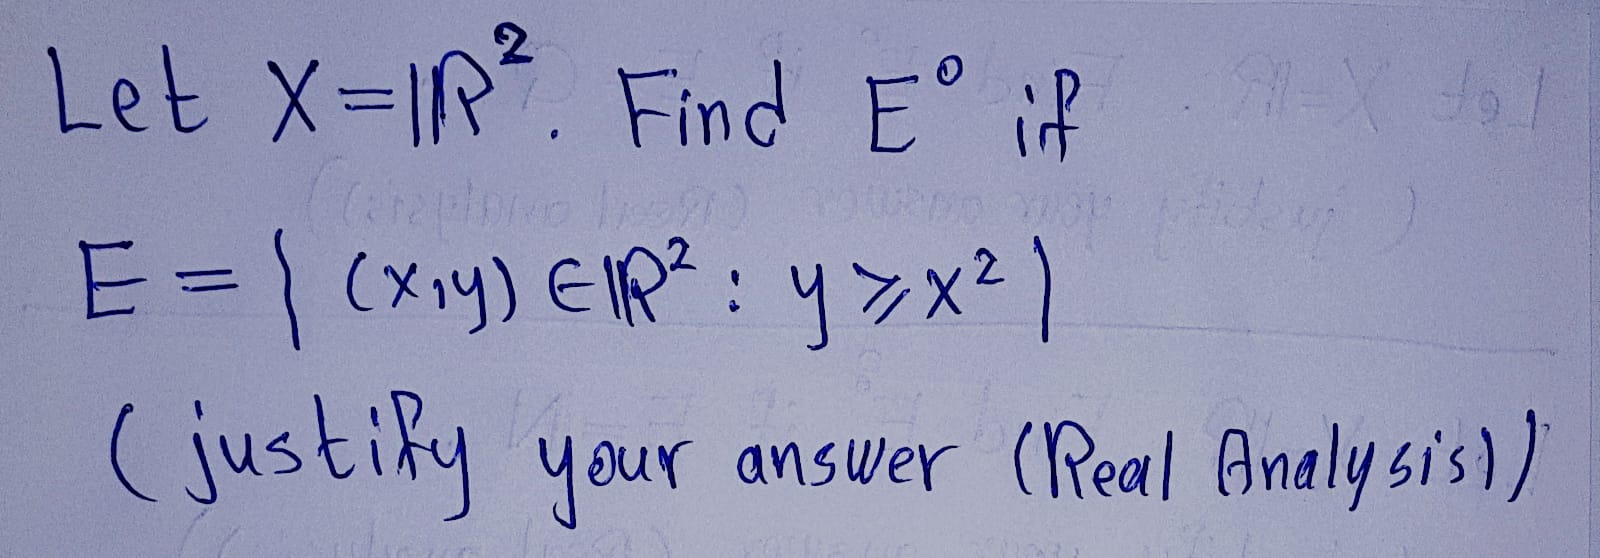 Let X=ℝ². Find E° if
E = { (x,y) ∈ ℝ² : y ⩾ x² }
( justify your answer (Real Analysis))